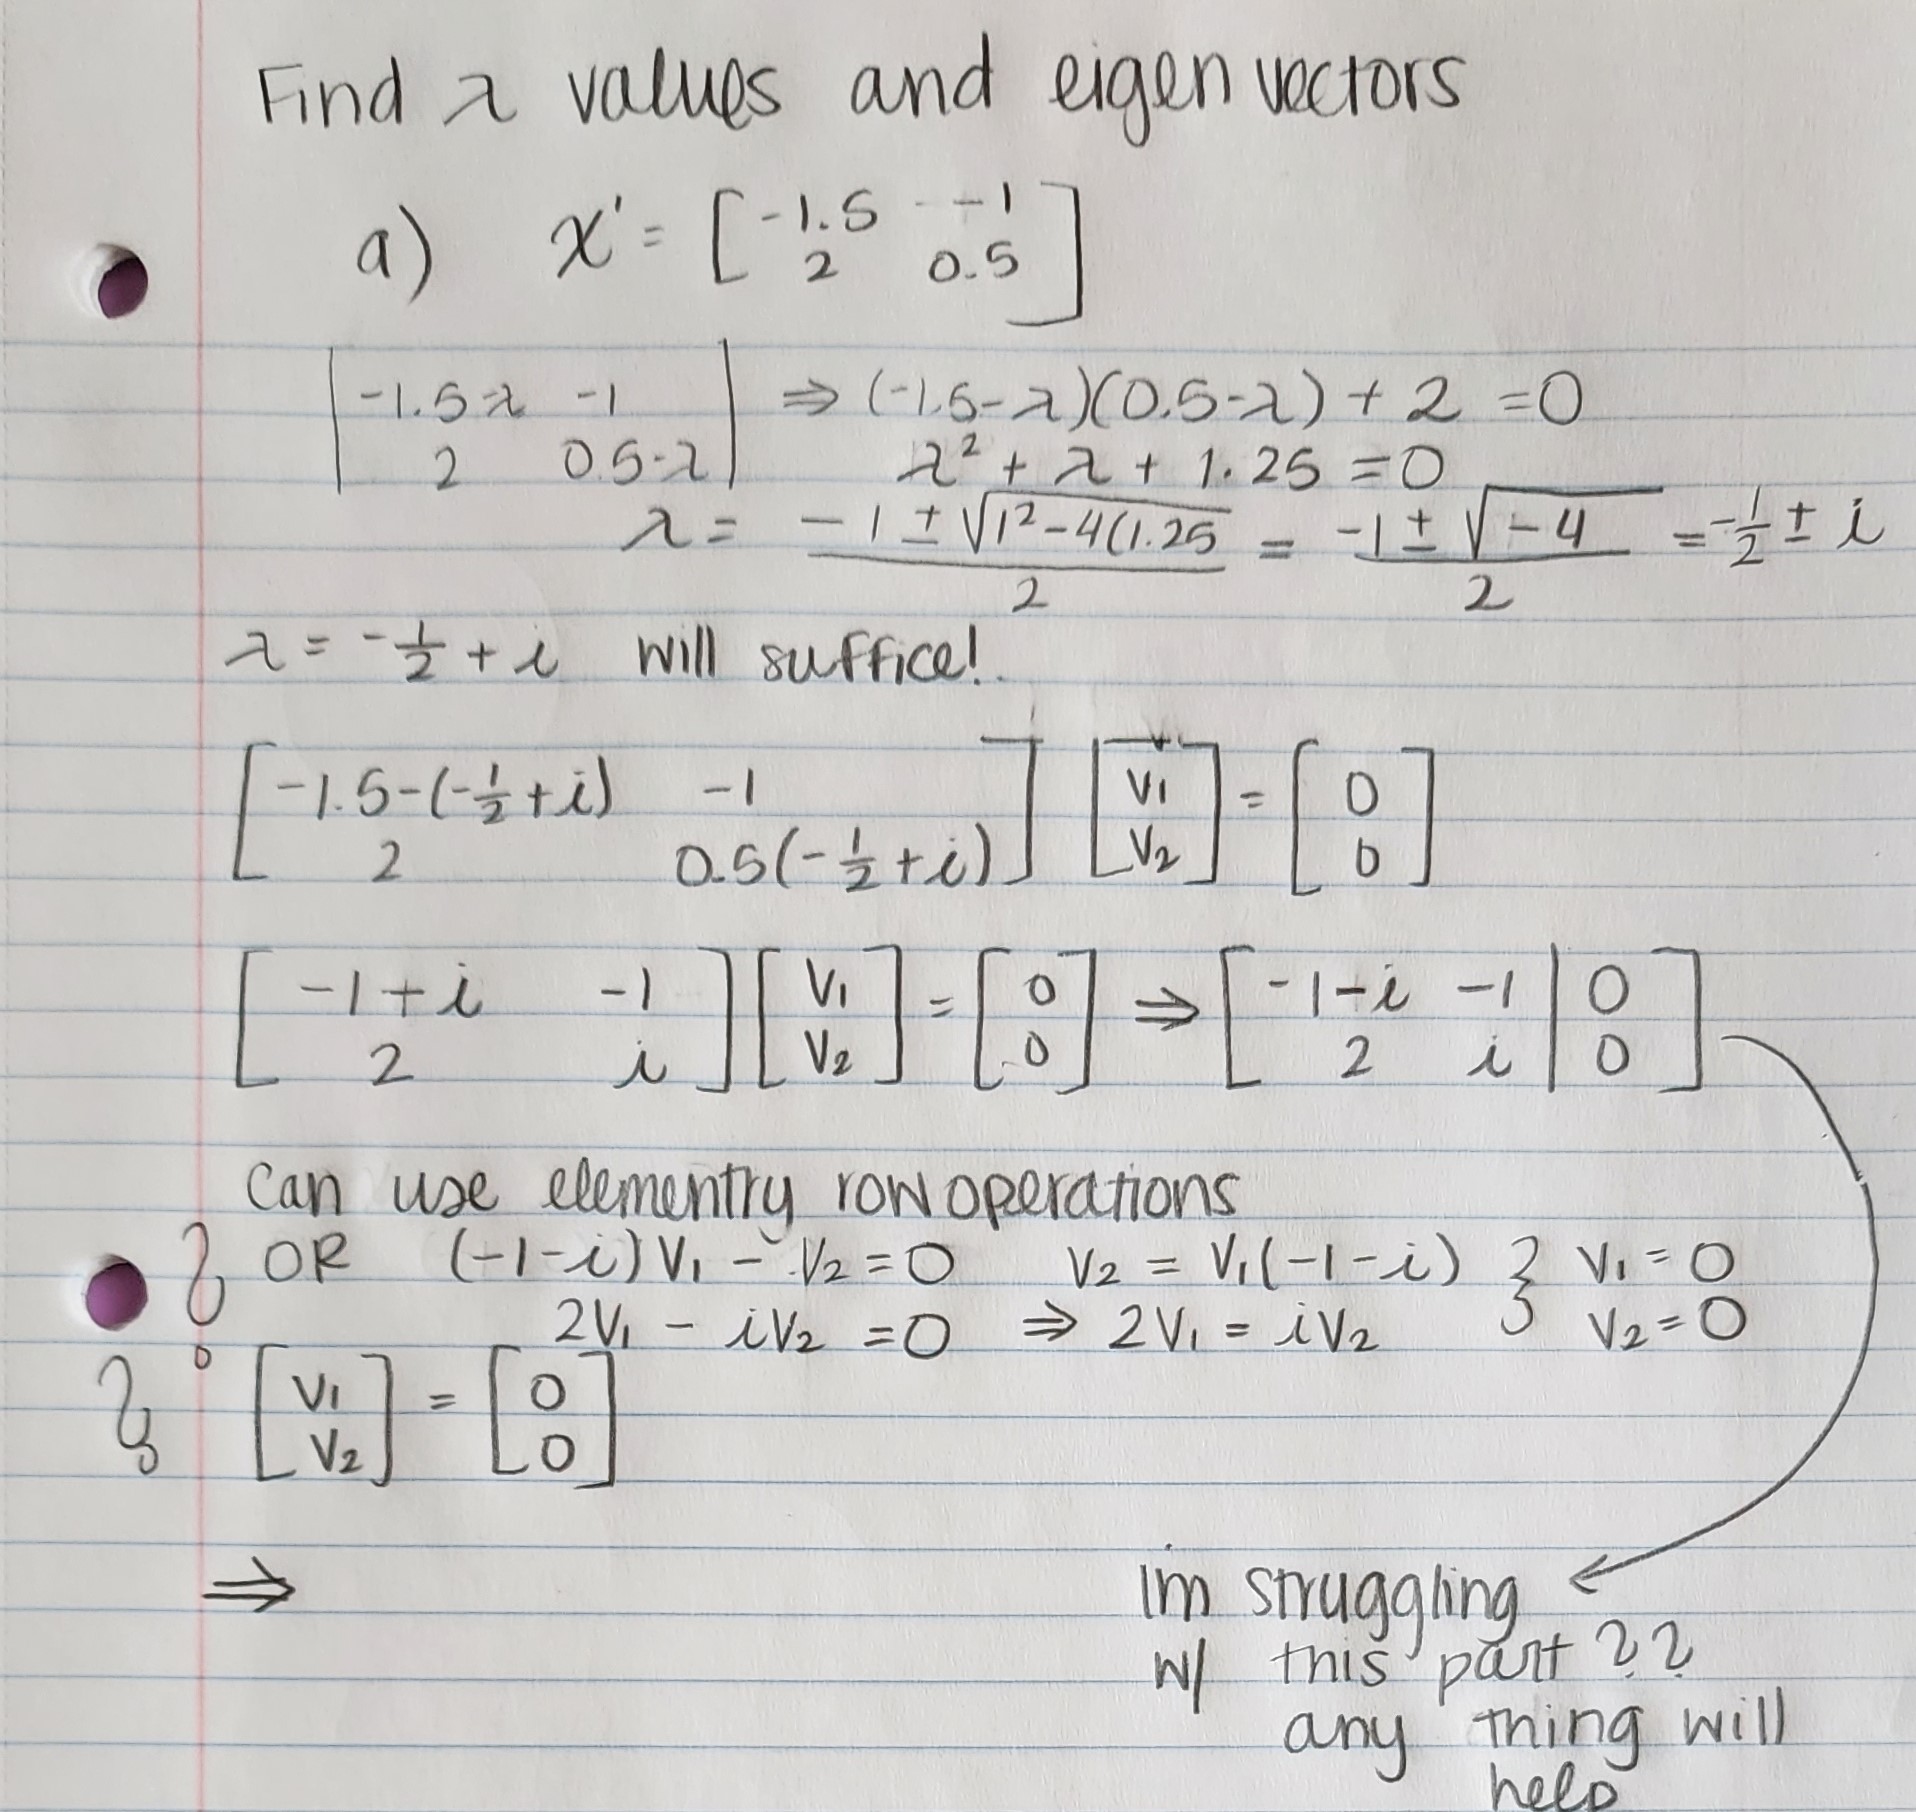 Find λ values and eigen vectors
a) x' = [ -1.5 -1
2 0.5 ]
| -1.5-λ -1 | ⇒ (-1.5-λ)(0.5-λ) + 2 = 0
| 2 0.5-λ | λ² + λ + 1.25 = 0
λ = (-1 ± √(1²-4(1.25)/2 = (-1 ± √-4)/2 = -1/2 ± i
λ = -1/2 + i will suffice!
[ -1.5-(-1/2+i) -1 ] [ v1 ] = [ 0 ]
[ 2 0.5(-1/2+i) ] [ v2 ] = [ 0 ]
[ -1+i -1 ] [ v1 ] = [ 0 ] ⇒ [ -1-i -1 | 0 ]
[ 2 i ] [ v2 ] = [ 0 ] [ 2 i | 0 ]
Can use elementry row operations
? OR (-1-i)v1 - v2 = 0 v2 = v1(-1-i) } v1 = 0
2v1 - iv2 = 0 ⇒ 2v1 = iv2 } v2 = 0
? [ v1 ] = [ 0 ]
[ v2 ] = [ 0 ]
⇒
Im struggling
w/ this part ??
any thing will
help